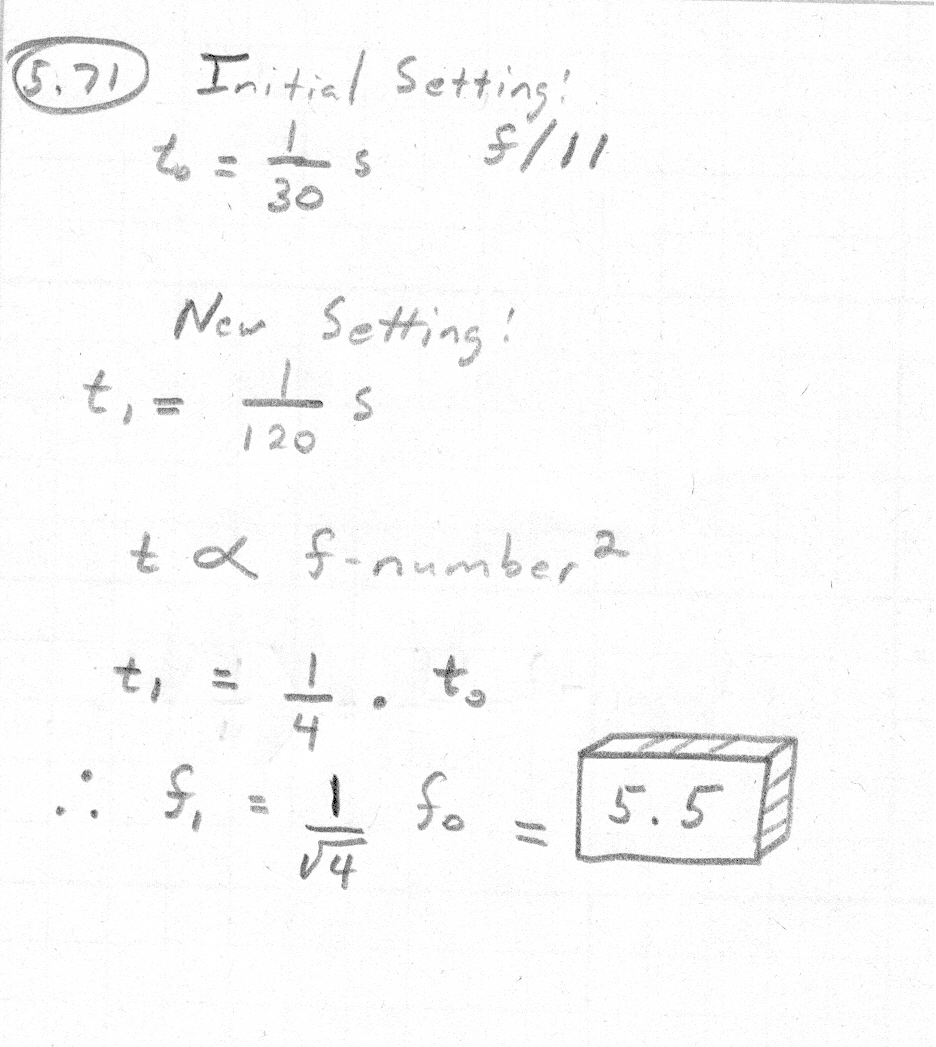 5.71 Initial Setting:
t₀ = 1/30 s f/11
New Setting:
t₁ = 1/120 s
t ∝ f-number²
t₁ = 1/4 · t₀
∴ f₁ = 1/√4 f₀ = 5.5